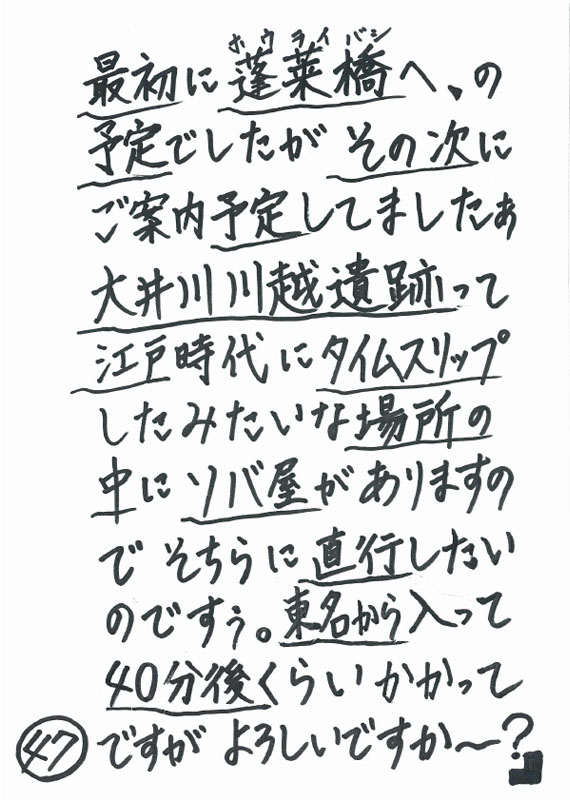 ホウライバシ
最初に蓬莱橋へ、の
予定でしたが その次に
ご案内予定してましたぁ
大井川川越遺跡って
江戸時代にタイムスリップ
したみたいな場所の
中にソバ屋がありますの
で そちらに直行したい
のですぅ。東名から入って
40分後くらいかかって
47 ですが よろしいですか〜?